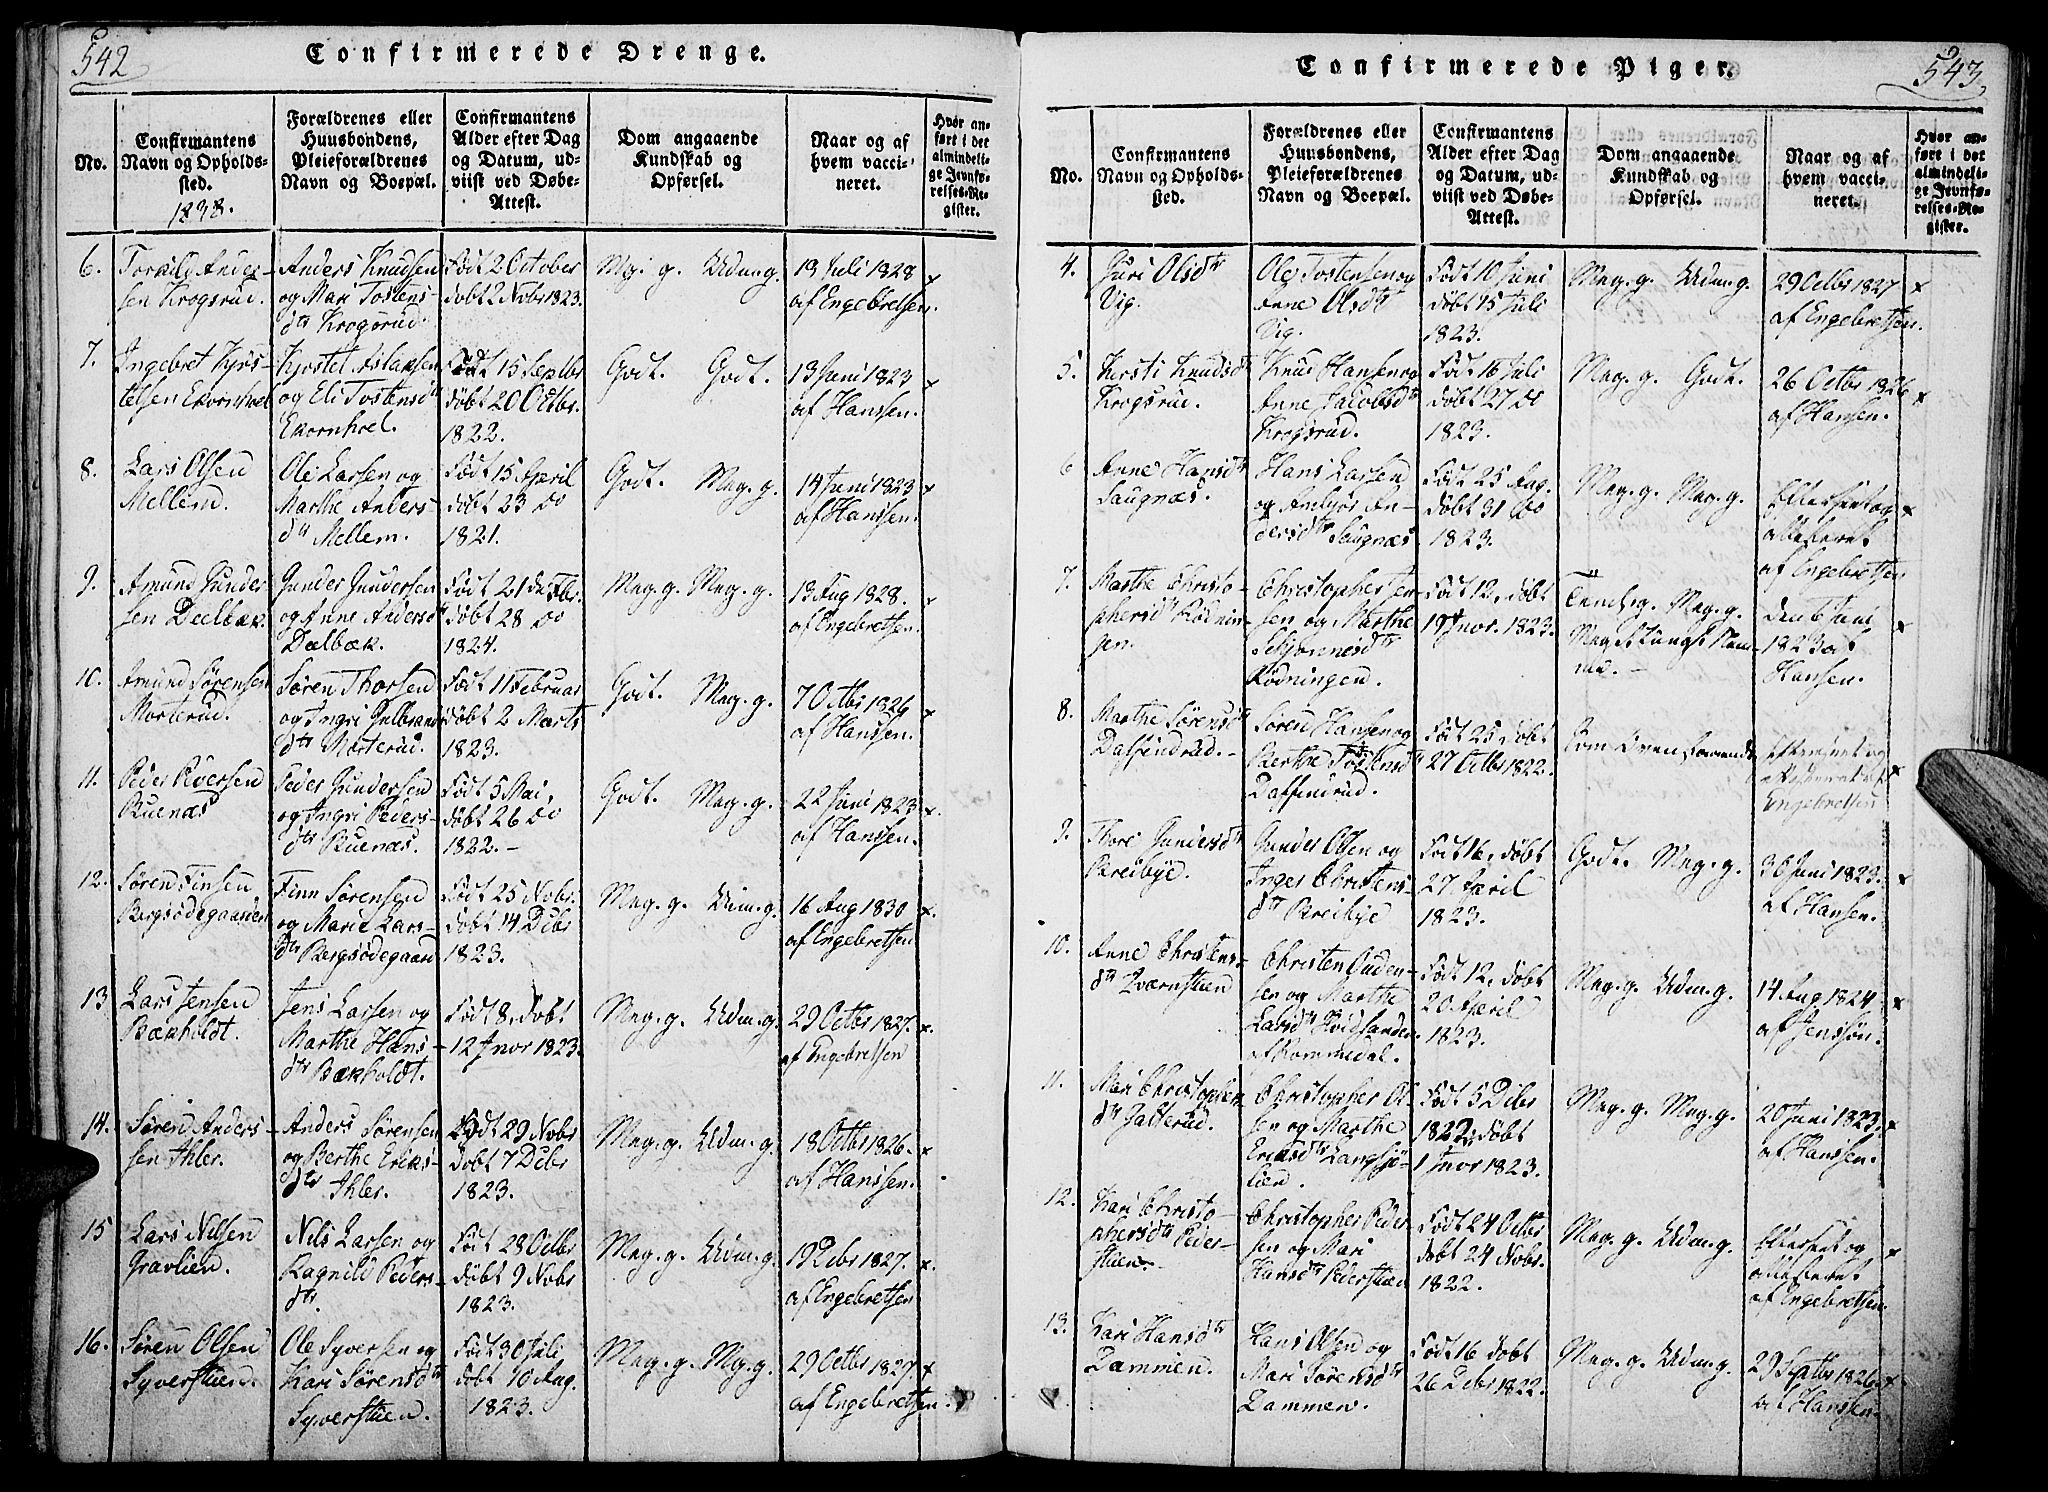 542
Confirmerede Drenge.
No.
Confirmantens
Navn og Opholds-
sted.
1838.
Forældrenes eller
Huusbondens,
Pleieforældrenes
Navn og Boepæl.
Confirmantens
Alder efter Dag
og Datum, ud-
viist ved Døbe-
Attest.
Dom angaaende
Kundskab og
Opførsel.
Naar og af
hvem vacci-
neret.
Hvor an-
ført i det
almindeli-
ge Jevnfø-
relses-Re-
gister.
6.
Ander-
sen Krogsrud.
Anders Knudsen
og Mari Tostens-
dtr Krogsrud.
Født 2 October
døbt 2 Nobr 1823.
Mg. g. Udm. g.
13 Juli 1828
af Engebretsen.
x
7.
Ingebret Kjøs-
telsen Ekornhoel
Kjøstel Aslaksen
og Eli Tostensdtr
Ekornhoel.
Født 15 Septbr
døbt 20 Octbr.
1822.
Godt. Godt.
13 Juni 1823
af Hanssen.
x
8.
Lars Olsen
Mellem.
Ole Larsen og
Marthe Anders-
dtr Mellem.
Født 15 April
døbt 23 do
1821.
Godt. Meg. g.
14 Juni 1823
af Hanssen.
x
9.
Amund Gunder-
sen Dælbæk.
Gunder Gundersen
og Anne Andersdtr
Dælbæk.
Født 21
døbt 28 do
1824.
Meg. g. Meg. g.
13 Aug 1828.
af Engebretsen.
x
10.
Amund Sørensen
Morterud.
Søren Thorsen
og Ingri Gulbrands
dtr Morterud.
Født 11 Februar
døbt 2 Marts
1823.
Godt. Meg. g.
7 Octbr 1826
af Hanssen.
x
11.
Peder Pedersen
Ruenæs
Peder Gundersen
og Ingri Peders-
dtr Ruenæs.
Født 5 Mai,
døbt 26 do
1822.-
Godt. Meg. g.
22 Juni 1823
af Hanssen.
x.
12.
Søren Finsen
Bergsødegaarden
Finn Sørensen
og Marie Lars-
dtr Bergsødegaard
Født 25 Nobr.
døbt 14 Debr
1823.
Meg. g. Udm. g.
16 Aug 1830
af Engebretsen
x.
13
Lars Jensen
Bækholdt.
Jens Larsen og
Marthe Hans-
dtr Bækholdt.
Født 8, døbt
12 Jnvr 1823.
Meg. g. Udm. g.
29 Octbr 1827.
af Engebretsen
x.
14.
Søren Anders-
sen Ihler.
Anders Sørensen
og Berthe Eriks-
dtr Ihler.
Født 29 Nobr
døbt 7 Debr
1823.
Meg. g. Udm. g.
18 Octbr 1826.
af Hanssen.
x
15
Lars Nilsen
Gravlien.
Nils Larsen og
Ragnild Peders-
dtr.
Født 28 Octbr
døbt 9 Nobr
1823.
Meg. g. Udm. g.
19 Debr 1827.
af Engebretsen
x.
16.
Søren Olsen
Syverstuen.
Ole Syversen og
Kari Sørensdtr
Syverstuen.
Født 30 Juli
døbt 10 Aug.
1823.
Meg. g. Mg. g.
29 Octbr 1827.
af Engebretsen.
x
543
Confirmerede Piger.
No.
Confirmantens
Navn og Opholds-
sted.
Forældrenes eller
Huusbondens,
Pleieforældrenes
Navn og Boepæl.
Confirmantens
Alder efter Dag
og Datum, ud-
viist ved Døbe-
Attest.
Dom angaaende
Kundskab og
Opførsel.
Naar og af
hvem vacci-
neret.
Hvor an-
føre i det
almindeli-
ge Jevnfø-
relses-Re-
gister.
4.
Guri Olsdtr
Vig.
Ole Tostensen og
Anne Olsdtr
Vig.
Født 10 Juni
døbt 15 Juli
1823.
Meg. g. Udm. g.
29 Octbr 1827
af Engebretsen.
x
5.
Kersti Knudsdtr
Krogsrud.
Knud Hansen og
Anne Jacobsdtr
Krogsrud.
Født 16 Juli
døbt 27 do
1823.
Meg. g. Godt.
26 Octbr 1826
af Hansen.
x
6
Anne Hansdtr
Saugnæs.
Hans Larsen
og An-
dersdtr Saugnæs
Født 25 Aug.
døbt 31 do
1823.
Meg. g. Meg. g.
Efterseet og
attesteret
af Engebretsen
x
7.
Marthe Christo-
phersdtr Rødnin-
gen.
Christopher Jen-
sen og Marthe
Rødningen.
Født 12, døbt
19 Jnvr. 1823.
Meg. g.
den 6 Juni
1823 af
Hansen.
x
8.
Marthe Sørensdtr
Dalfindrud.-
Søren Hansen og
Berthe Tostensdtr
Dalfindrud.
Født 25 døbt
27 Octbr 1822.
Som Ovenstaaende
Efterseet og
attesteret af
Engebretsen
x
9.
Thore Gundersdtr
Breibye.
Gunder Olsen og
Inger Christens-
dtr Breibye
Født 16, døbt
27 April
1823.
Godt. Meg. g.
30 Juni 1823.
af Hansen.
x
10.
Anne Christens-
dtr Qværnstuen
Christen Auden-
sen og Marthe
Larsdtr Hvidsanden
af Rommedal.
Født 12, døbt
20 April
1823.
Meg. g. Udm. g.
14 Aug 1824.
af Jenssøn.
x
11.
Mari Christophers
dtr Galterud.
Christopher Ol-
sen og Marthe
Eriksdtr Langsjø-
lien.
Født 5 Debr
1822, døbt
1 Jnvr 1823.
Meg. g. Meg. g.
20 Juni 1823.
af Hanssen.
x
12.
Kari Christo-
phersdtr Peder-
stuen.
Christopher Peder-
sen og Mari
Hansdtr Pederstuen
Født 24 Octbr
døbt 24 Nobr.
1822.
Meg. g. Udm. g.
Efterseet og
attesteret
af Engebretsen.
x
13.
Kari Hansdtr
Dammen.
Hans Olsen og
Mari Sørensdtr
Dammen.
Født 16 døbt
26 Debr 1822.
Meg. g. Udm. g.
29 Septbr 1826.
af Hanssen.
x